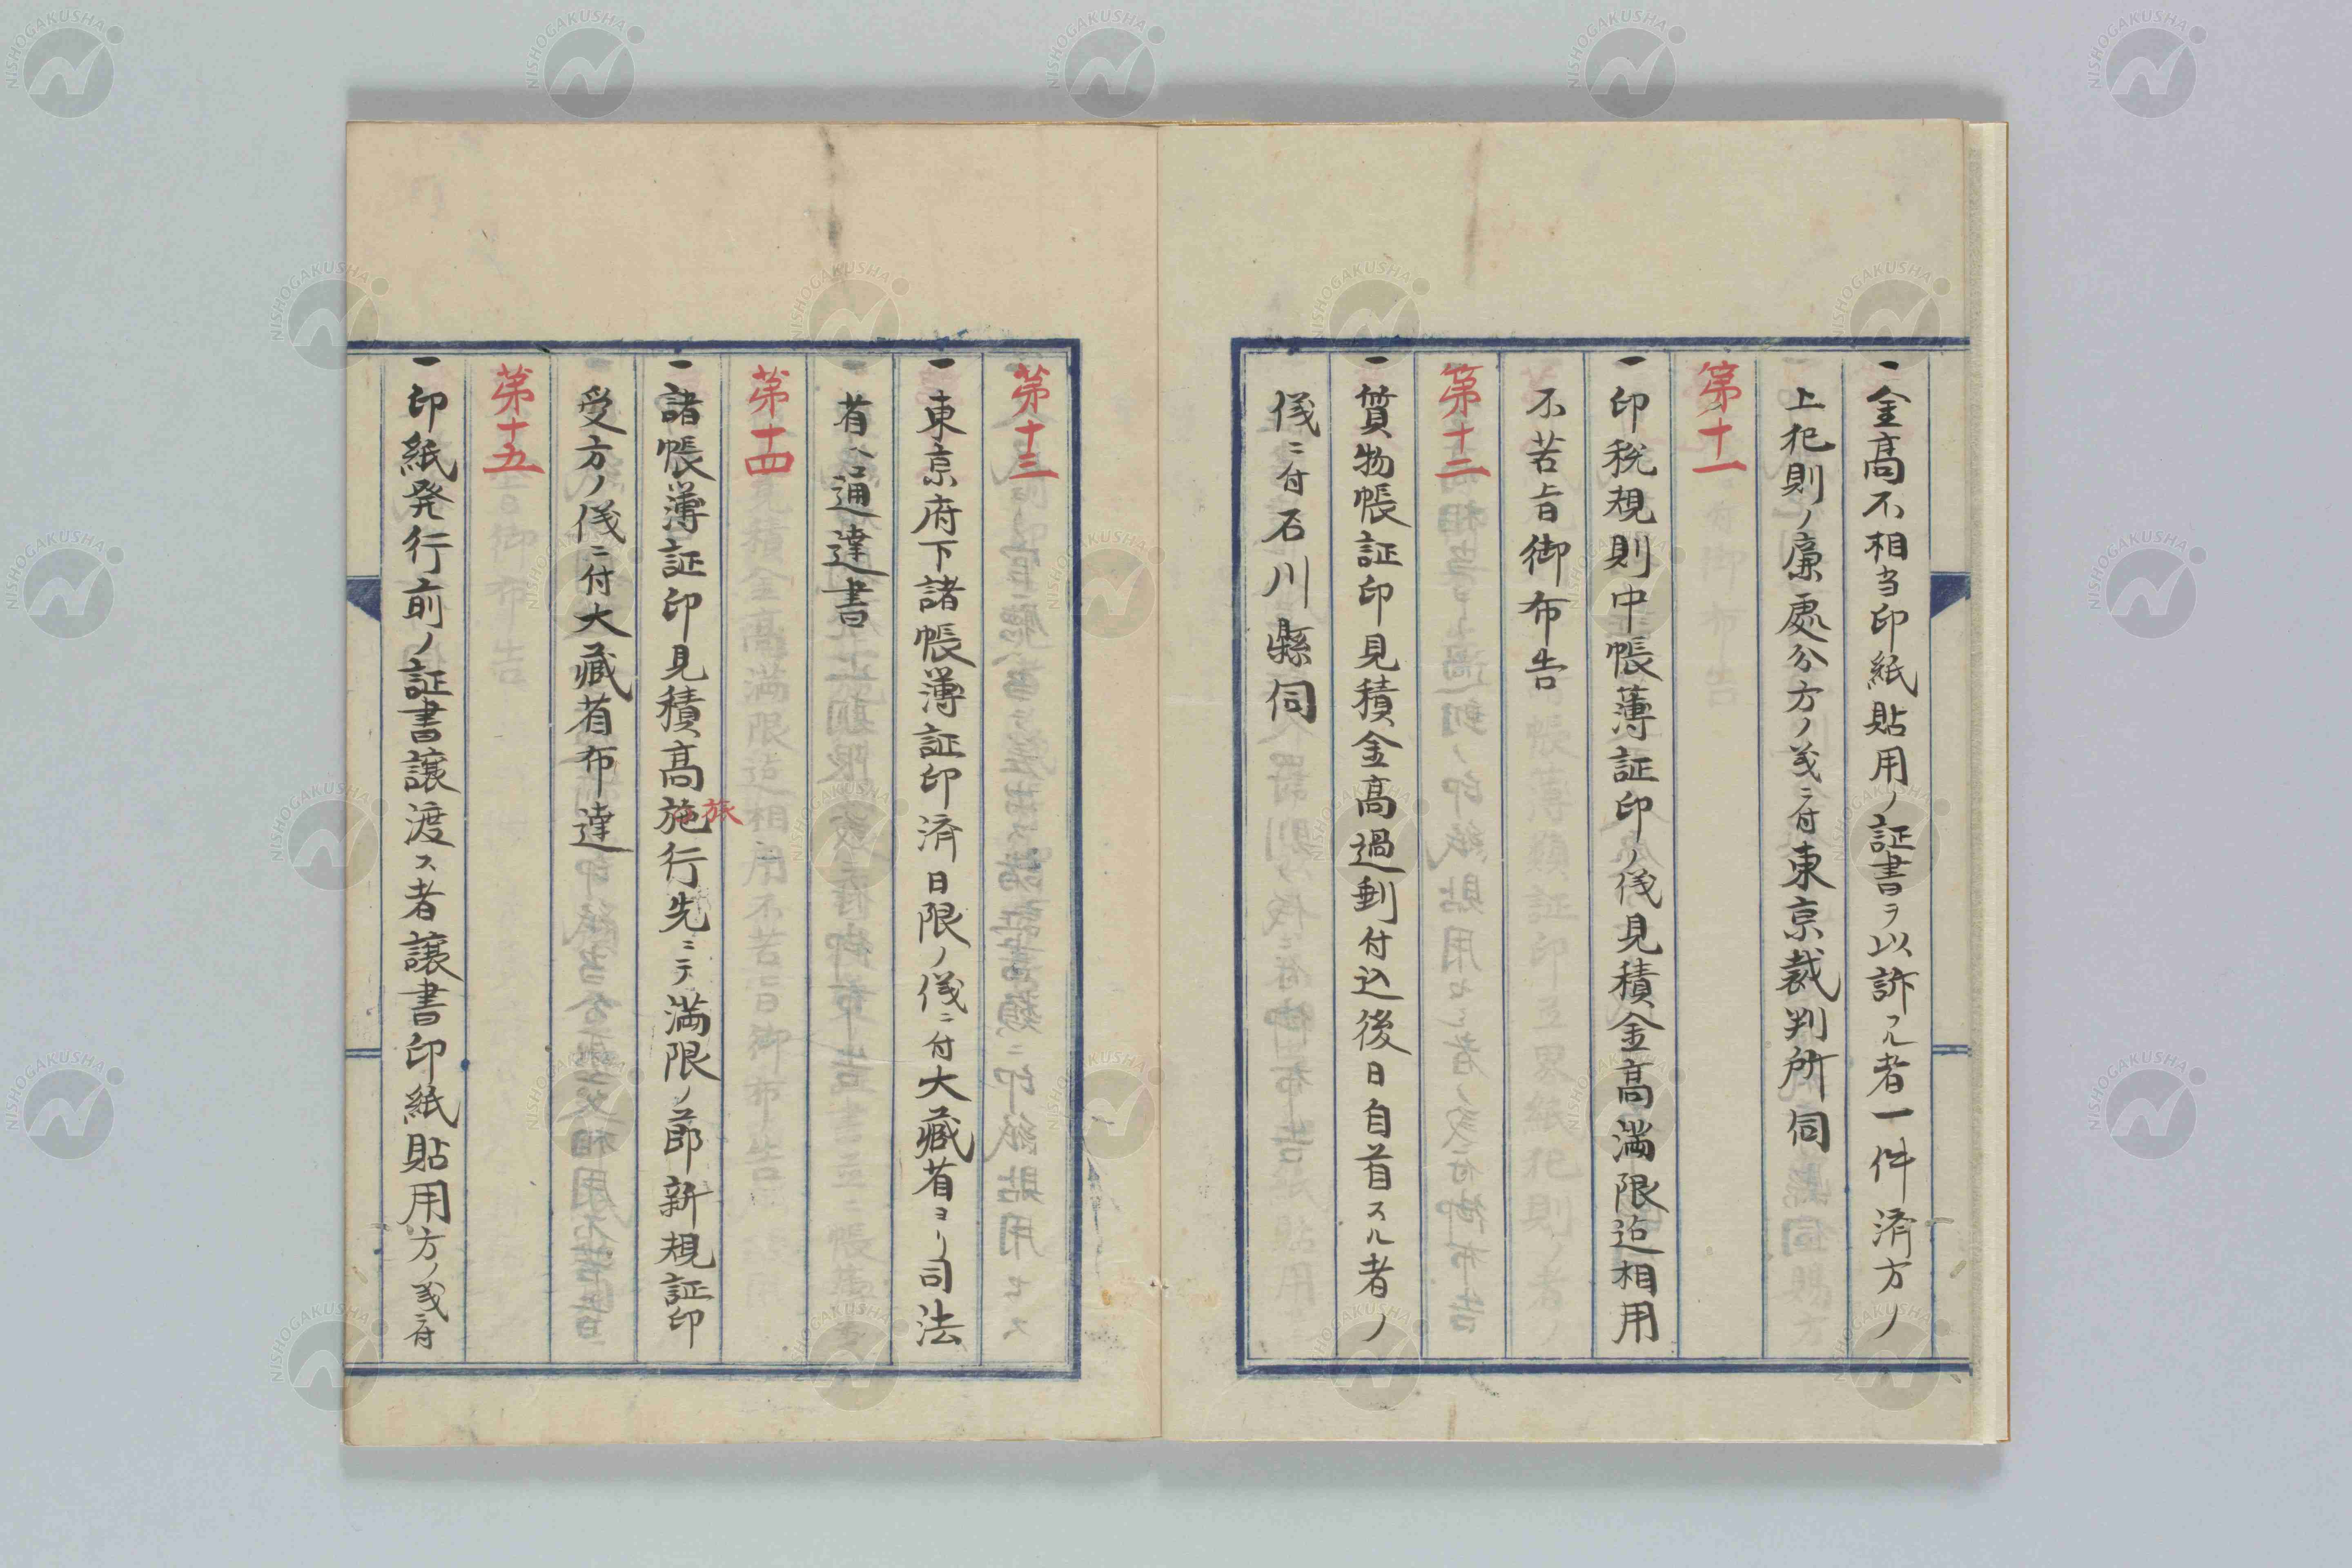 一金高不相当印紙貼用ノ証書ヲ以訴ル者一件済方ノ
上犯則ノ廉処分方ノ義ニ付東京裁判所伺
第十一
一印税規則中帳薄証印ノ儀見積金高満限迠相用
不苦旨御布告
第十二
一質物帳証印見積金高過剰付込後日自首スル者ノ
儀ニ付石川縣伺
第十三
一東京府下諸帳薄証印済日限ノ儀ニ付大藏省ヨリ司法
省ヘ通達書
第十四
一諸帳薄証印見積高施行先ニテ満限ノ節新規証印
旅
受方ノ儀ニ付大藏省布達
第十五
一印紙発行前ノ証書譲渡ス者譲書印紙貼用方ノ義ニ付
NISHOGAKUSHA